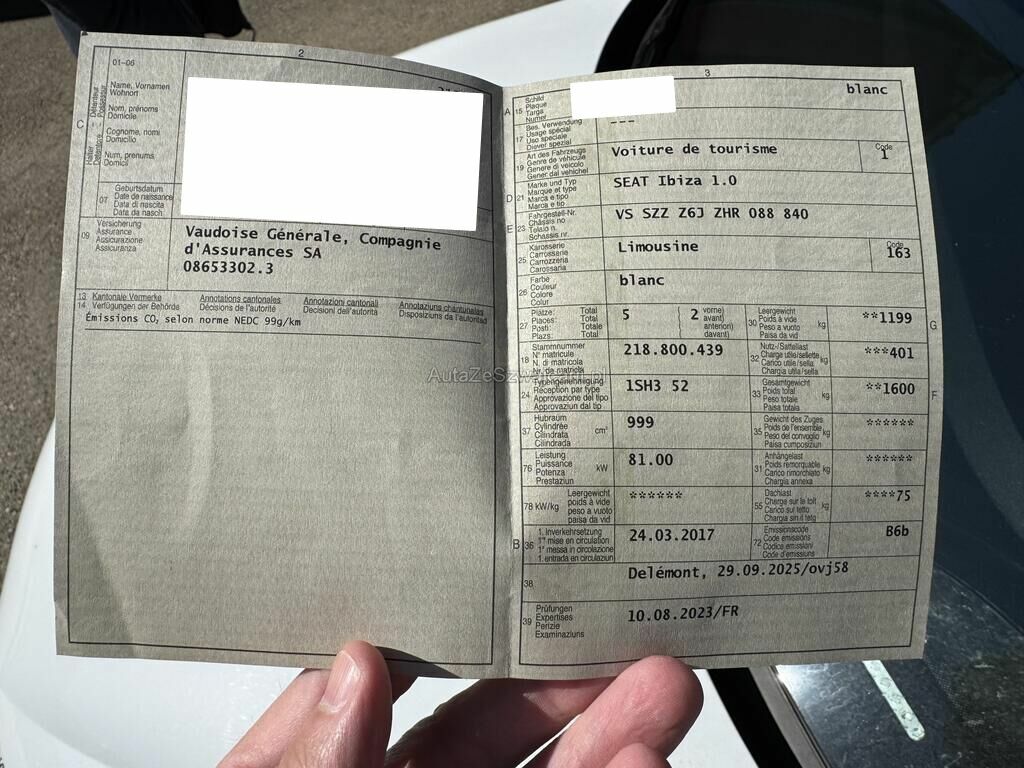 2
01-06
Name, Vornamen
Wohnort
Nom, prénoms
Domicile
Cognome, nomi
Domicilio
Num, prenums
Domicil
C
Halter
Détenteur
Detentore
Possessur
07
Geburtsdatum
Date de naissance
Data di nascita
Data da nasch.
09
Versicherung
Assurance
Assicurazione
Assicuranza
Vaudoise Générale, Compagnie
d'Assurances SA
08653302.3
13 Kantonale Vermerke Annotations cantonales Annotazioni cantonali Annotaziuns chantunalas
14 Verfügungen der Behörde Décisions de l'autorité Decisioni dell'autorità Disposiziuns da l'autoritad
Émissions CO₂ selon norme NEDC 99g/km
AutaZeSzwajcarii.pl
3
A 15
Schild
Plaque
Targa
Numer
blanc
17
Bes. Verwendung
Usage spécial
Uso speciale
Diever spezial
---
19
Art des Fahrzeugs
Genre de véhicule
Genere di veicolo
Gener dal vehichel
Voiture de tourisme
Code
1
D 21
Marke und Typ
Marque et type
Marca e tipo
Marca e tip
SEAT Ibiza 1.0
E 23
Fahrgestell-Nr.
Châssis no
Telaio n.
Schassis nr.
VS SZZ Z6J ZHR 088 840
25
Karosserie
Carrosserie
Carrozzeria
Carossaria
Limousine
Code
163
26
Farbe
Couleur
Colore
Colur
blanc
27
Plätze: Total
Places: Total
Posti: Totale
Plazs: Total
5
2
vorne)
avant)
anteriori)
davant)
30
Leergewicht
Poids à vide
Peso a vuoto
Paisa da vid
kg
**1199
G
18
Stammnummer
N° matricule
N. di matricola
Nr. da matricla
218.800.439
32
Nutz-/Sattellast
Charge utile/sellette
Carico utile/sella
Chargia utila/sella
kg
***401
24
Typengenehmigung
Réception par type
Approvazione del tipo
Approvaziun dal tip
1SH3 52
33
Gesamtgewicht
Poids total
Peso totale
Paisa totala
kg
**1600
F
37
Hubraum
Cylindrée
Cilindrata
Cilindrada
cm³
999
35
Gewicht des Zuges
Poids de l'ensemble
Peso del convoglio
Paisa cumposiziun
kg
******
76
Leistung
Puissance
Potenza
Prestaziun
kW
81.00
31
Anhängelast
Poids remorquable
Carico rimorchiato
Chargia annexa
kg
******
78 kW/kg
Leergewicht
poids à vide
peso a vuoto
paisa da vid
******
55
Dachlast
Charge sur le toit
Carico sul tetto
Chargia sin il tetg
kg
****75
B 36
1. Inverkehrsetzung
1re mise en circulation
1a messa in circolazione
1. entrada en circulaziun
24.03.2017
72
Emissionscode
Code émissions
Codice emissioni
Code d'emissiuns
B6b
38
Delémont, 29.09.2025/ovj58
39
Prüfungen
Expertises
Perizie
Examinaziuns
10.08.2023/FR